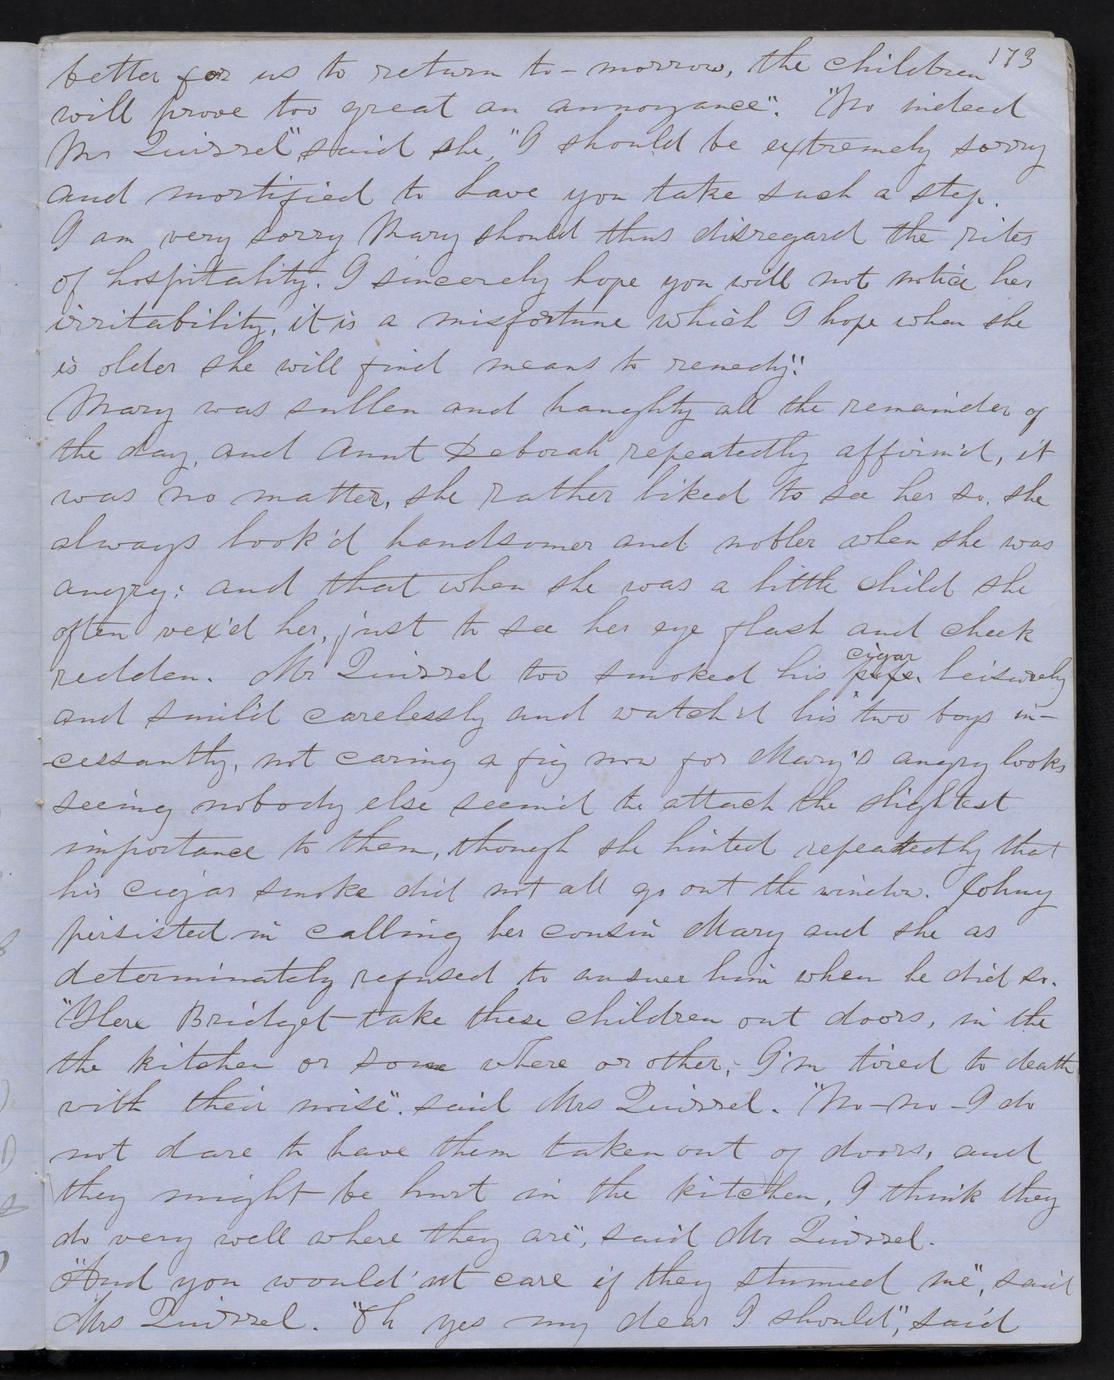 173
better for us to return to-morrow, the children
will prove too great an annoyance". "No indeed
Mr Quirrel" said she, "I should be extremely sorry
and mortified to have you take such a step.
I am very sorry Mary should thus disregard the rites
of hospitality. I sincerely hope you will not notice her
irritability, it is a misfortune which I hope when she
is older she will find means to remedy."
Mary was sullen and haughty all the remainder of
the day, and Aunt Deborah repeatedly affirm'd, it
was no matter, she rather liked to see her so. she
always look'd handsomer and nobler when she was
angry: and that when she was a little child she
often vex'd her, just to see her eye flash and cheek
redden. Mr Quirrel too smoked his pipe cigar leisurely
and smil'd carelessly and watch'd his two boys in-
cessantly, not caring a fig now for Mary's angry looks
seeing nobody else seem'd to attach the slightest
importance to them, though she hinted repeatedly that
his cigar smoke did not all go out the window. Johny
persisted in calling her cousin Mary and she as
determinately refused to answer him when he did so.
"Here Bridget take these children out doors, in the
the kitchen or some where or other; I'm tired to death
with their noise". said Mrs Quirrel. "No-no-I do
not dare to have them taken out of doors, and
they might be hurt in the kitchen, I think they
do very well where they are", said Mr Quirrel.
"And you would'nt care if they stunned me", said
Mrs Quirrel. "Oh yes my dear I should", said